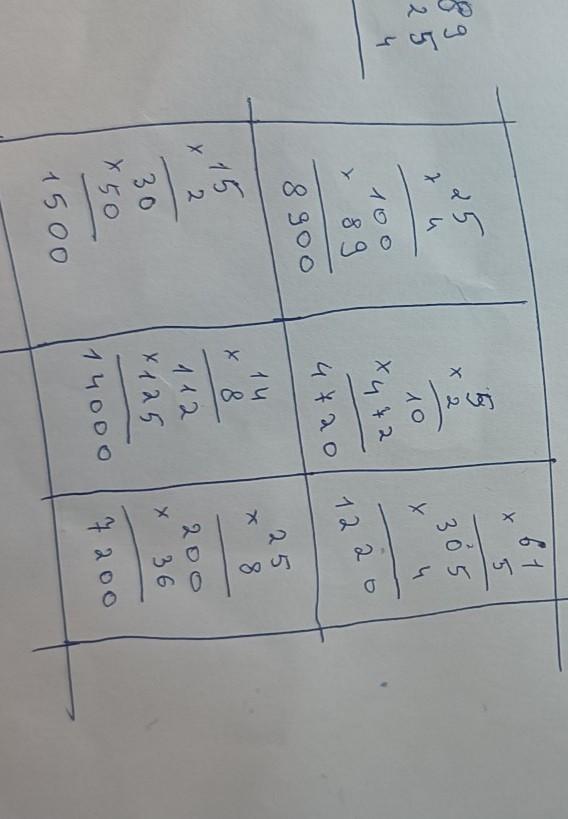 89
25
4
25
x 4
100
x 89
8900
5
x 2
10
x 472
4720
61
x 5
305
x 4
1220
15
x 2
30
x 50
1500
14
x 8
112
x 125
14000
25
x 8
200
x 36
7200